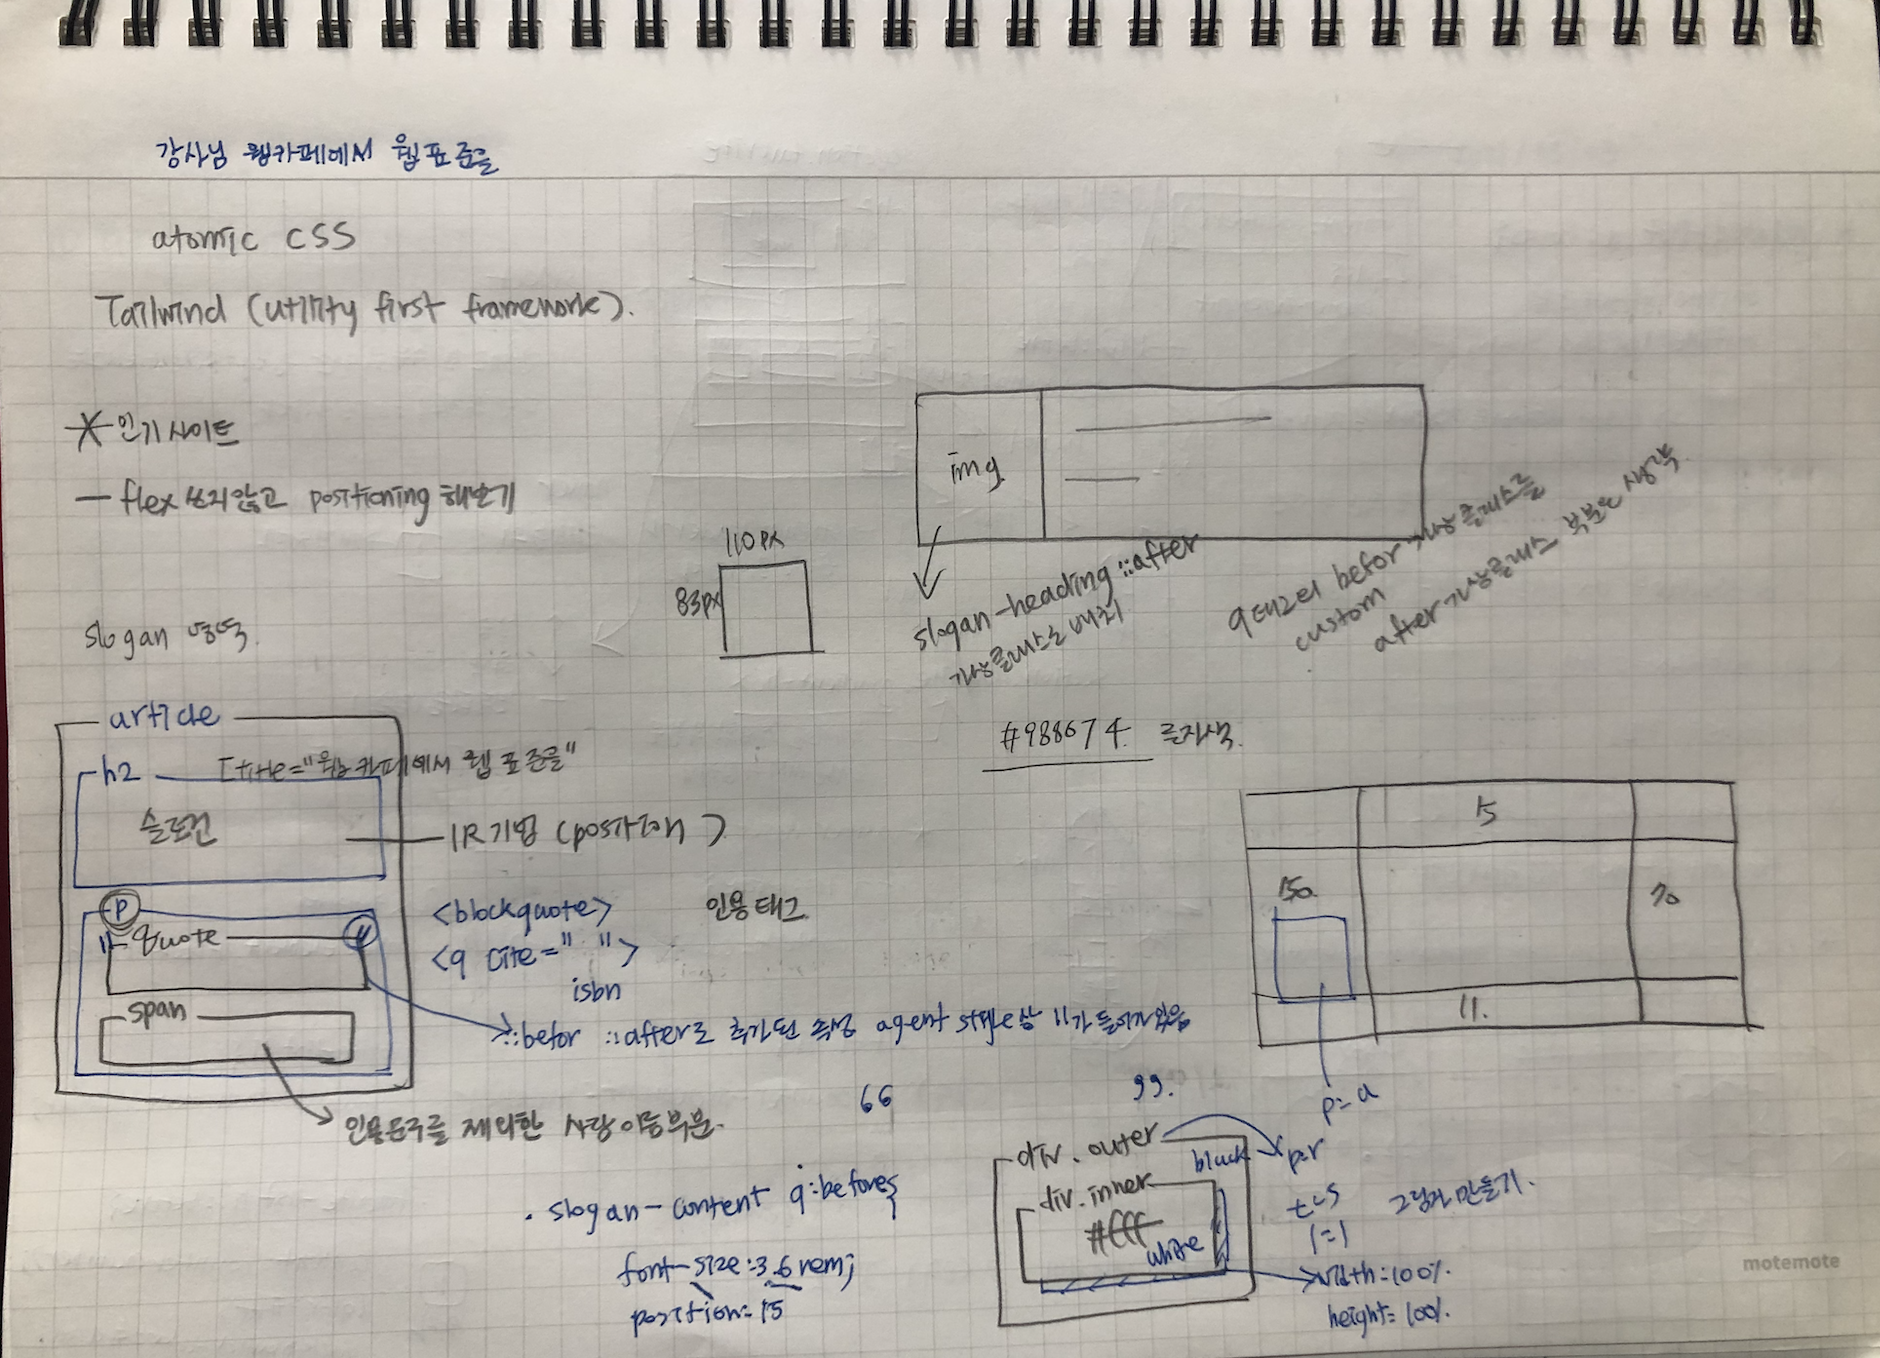 강사님 웹카페에서 웹표준을
atomic CSS
Tailwind (utility first framework).
* 인기사이트
- flex 쓰지않고 positioning 해보기
img
110px
83px
slogan-heading ::after
가상클래스로 배치
q태그의 befor 가상클래스를
custom
after 가상클래스 부분은 생략
slogan 영역.
#988674 글자색.
article
h2 [title="웹카페에서 웹표준을"
슬로건
IR기법 (position )
p
quote
span
<blockquote> 인용태그
<q cite=" ">
isbn
::befor ::after로 추가된 속성 agent style상 "가 들어가있음
인용문구를 제외한 사람이름부분.
66 99.
15
150
30
11.
p=a
.slogan-content q:before{
font-size:3.6rem;
position:15
div.outer
black
p=r
div.inner
#fff
white
t=5
l=1
그림자 만들기.
width:100%.
height=100%.
motemote